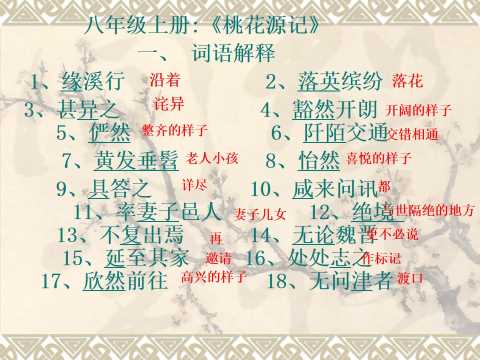 八年级上册:《桃花源记》
一、 词语解释
1、缘溪行 沿着 2、落英缤纷 落花
3、甚异之 诧异 4、豁然开朗 开阔的样子
5、俨然 整齐的样子 6、阡陌交通 交错相通
7、黄发垂髫 老人小孩 8、怡然 喜悦的样子
9、具答之 详尽 10、咸来问讯 都
11、率妻子邑人 妻子儿女 12、绝境 世隔绝的地方
13、不复出焉 再 14、无论魏晋 不必说
15、延至其家 邀请 16、处处志之 作标记
17、欣然前往 高兴的样子 18、无问津者 渡口